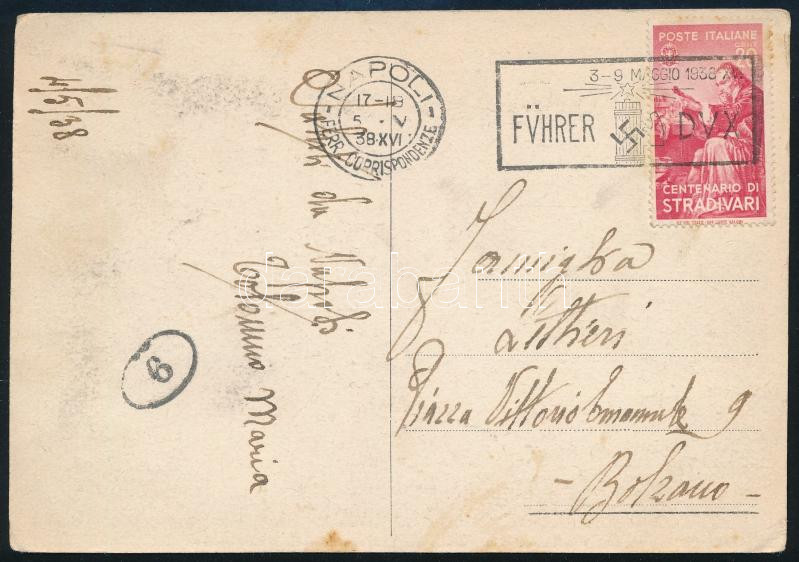 4/5/38
NAPOLI
17-18
5 · V
38·XVI
FERR. CORRISPONDENZE
3-9 MAGGIO 1938 XVI
FVHRER
DVX
POSTE ITALIANE
20
CENTENARIO DI
STRADIVARI
da Napoli
Maria
6
Famiglia
Piazza Vittorio Emanuele 9
- Bolzano -
darabanth